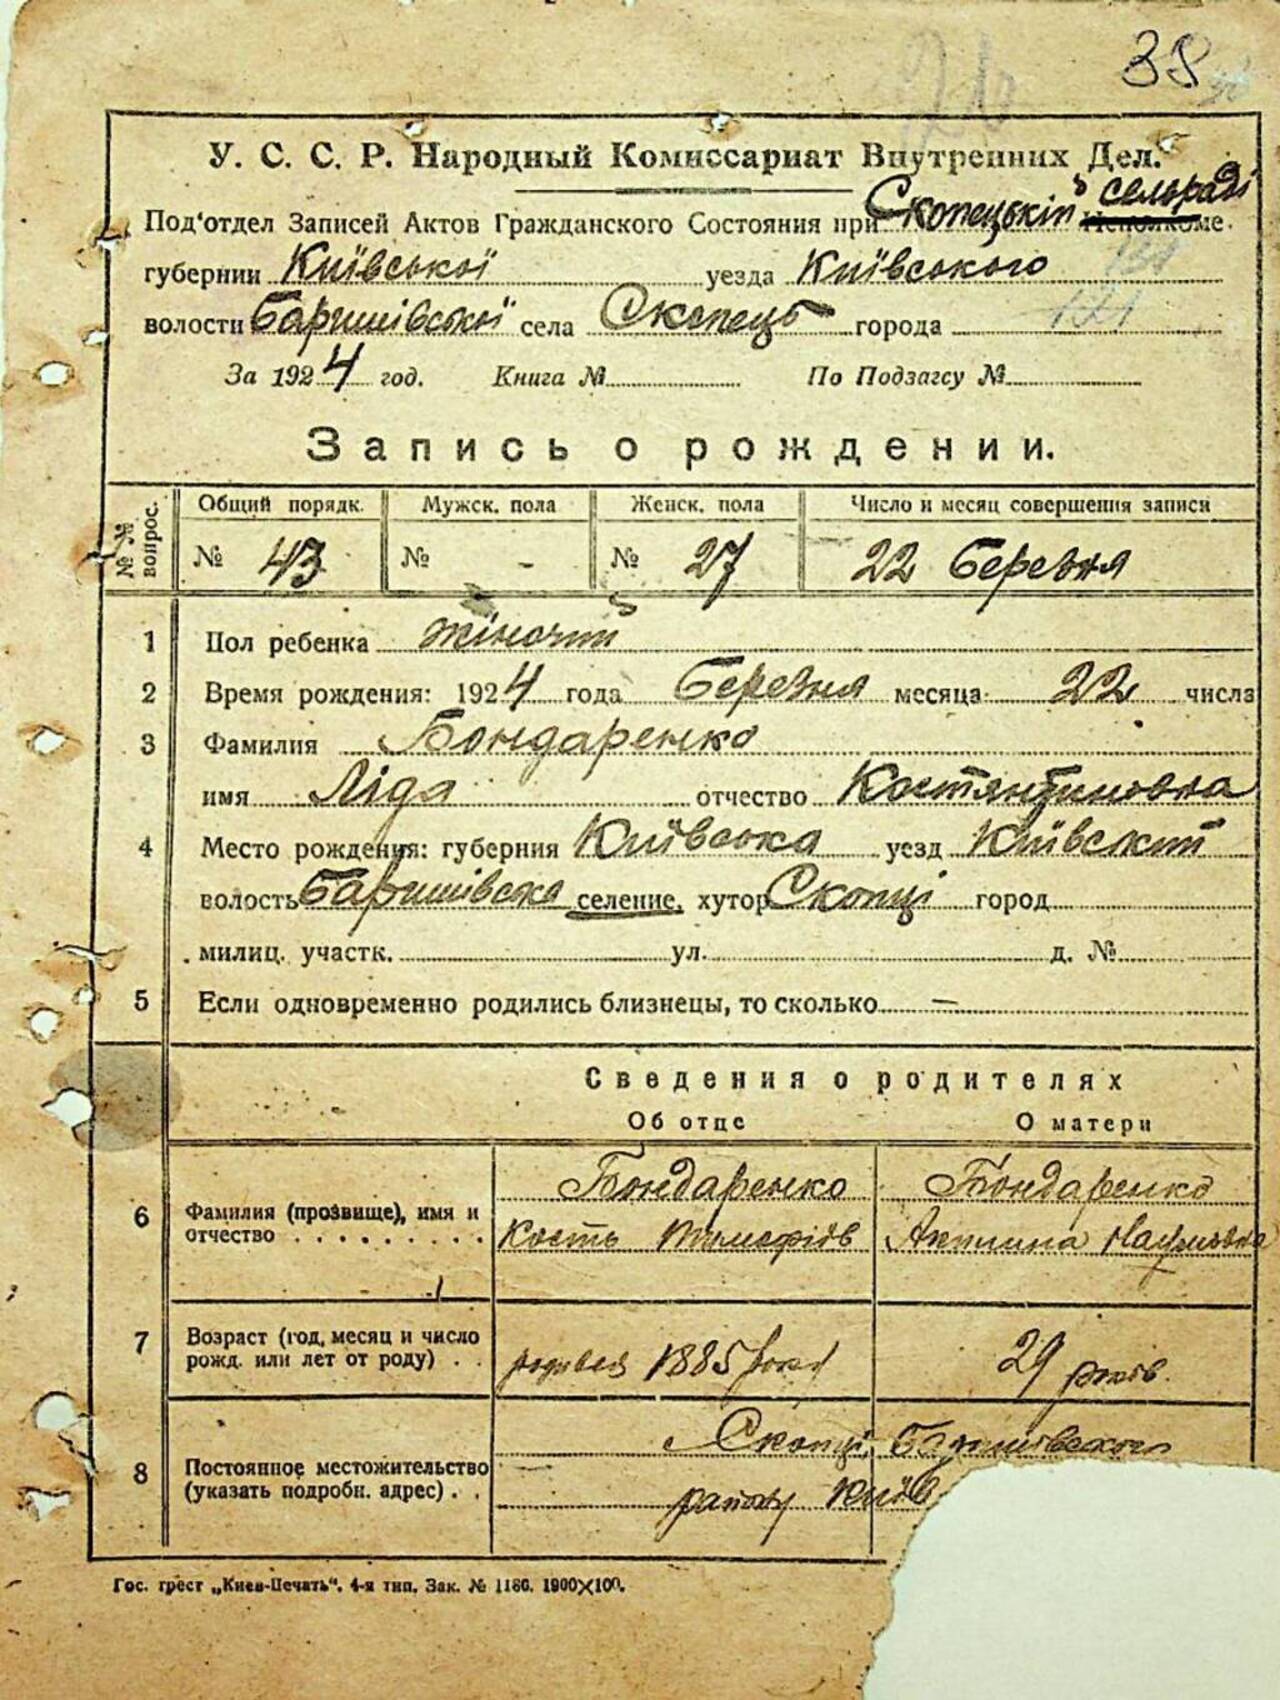 38
У. С. С. Р. Народный Комиссариат Внутренних Дел.
Под'отдел Записей Актов Гражданского Состояния при Скопецькій сельраді Исполкоме.
губернии Київської уезда Київського
волости Баришівської села Скопець города
За 1924 год. Книга № По Подзагсу №
Запись о рождении.
№№ вопрос. Общий порядк. Мужск. пола Женск. пола Число и месяц совершения записи
№ 43 № - № 27 22 Березня
1 Пол ребенка жіночій
2 Время рождения: 1924 года Березня месяца 22 числа
3 Фамилия Бондаренко
имя Ліда отчество Костянтиновна
4 Место рождения: губерния Київська уезд Київский
волость Баришівска селение, хутор Скопці город
милиц. участк. ул. д. №
5 Если одновременно родились близнецы, то сколько —
Сведения о родителях
Об отце О матери
Бондаренко Бондаренко
6 Фамилия (прозвище), имя и отчество Кость Тимофіїв Наумовна
7 Возраст (год, месяц и число рожд. или лет от роду) родився 1885 року 29 років.
Скопці, Баришівського
8 Постоянное местожительство (указать подробн. адрес) району Київ
Гос. трест „Киев-Печать". 4-я тип. Зак. № 1186. 1900×100.